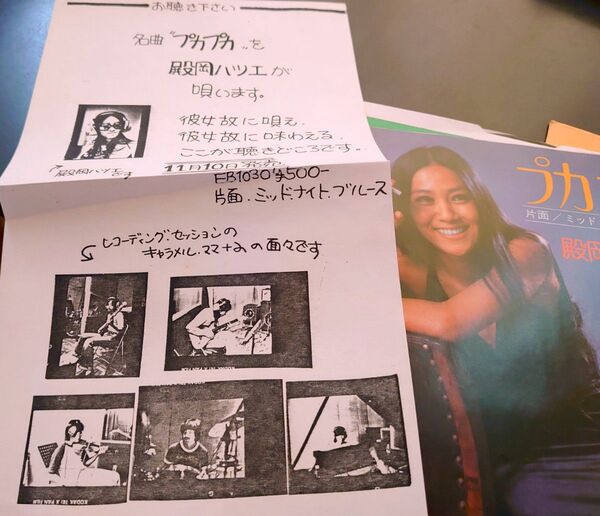 お聴き下さい
名曲“プカプカ„を
殿岡ハツエが
唄います。
彼女故に唄え、
彼女故に味わえる、
ここが聴きどころです。
11月10日発売
殿岡ハツエです
EB1030 ¥500-
片面、ミッドナイト、ブルース
レコーディング、セッションの
キャラメル、ママ+αの面々です
KODAK TRI X PAN FILM
KODAK TRI X PAN FILM
プカ
片面/ミッド
殿岡